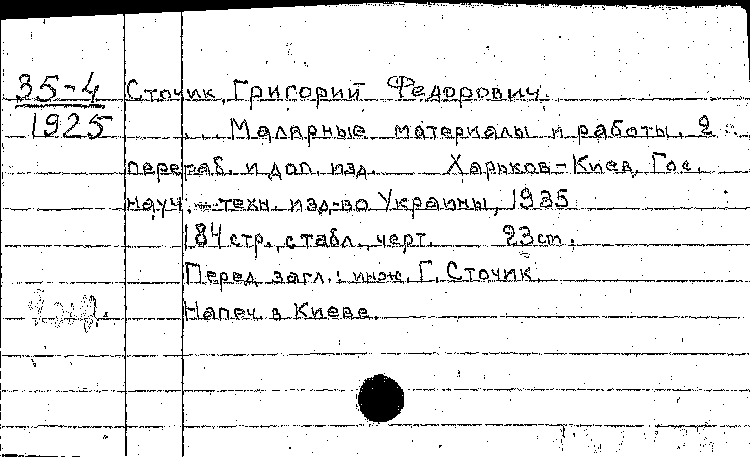 35-4 Сточик, Григорий Федорович.
1925 ... Малярные материалы и работы. 2
перераб. и доп. изд. Харьков-Киев, Гос.
науч.-техн. изд-во Украины, 1935
184 стр., с табл., черт. 23 cm.
Перед загл.: инж. Г. Сточик.
Напеч. в Киеве.